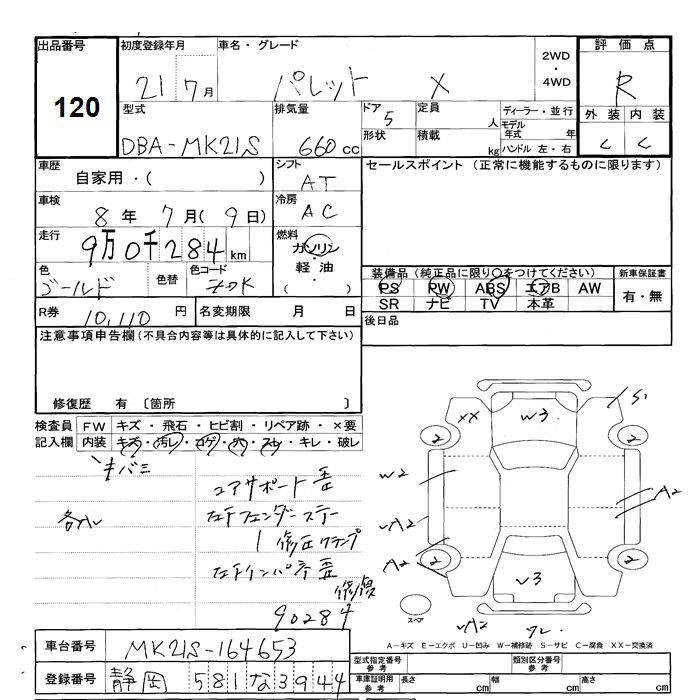 出品番号 初度登録年月 車名・グレード 2WD・4WD 評価点
120 21 7月 パレット X R
型式 排気量 ドア 5 定員 人 ディーラー・並行 外装 内装
DBA-MK21S 660cc 形状 積載 kg モデル年式 年 C C
ハンドル 左・右
車歴 自家用・( ) シフト AT セールスポイント (正常に機能するものに限ります)
車検 8年 7月(9日) 冷房 AC
走行 9万0千284km 燃料 ガソリン・軽油・( )
色 ゴールド 色替 色コード
装備品(純正品に限り○をつけてください) 新車保証書
PS PW ABS エアB AW 有・無
SR ナビ TV 本革
R券 10,110円 名変期限 月 日 後日品
注意事項申告欄(不具合内容等は具体的に記入して下さい)
修復歴 有 〔箇所 〕
検査員記入欄 FW キズ・飛石・ヒビ割・リペア跡・×要
内装 キズ・汚レ・コゲ・穴・スレ・キレ・破レ
キバミ
コアサポート歪
左Fフェンダーステー
修正クランプ
左Fインパネ歪
修復
90284
XX W3 S1
2 2
W2 A2
A2
2 2
V3
スペア
A2
A-キズ E-エクボ U-凹み W-補修跡 S-サビ C-腐食 XX-交換済
車台番号 MK21S-164653
型式指定番号参考 類別区分番号参考
登録番号 静岡 581な3944
車庫証明用参考 長さ cm 幅 cm 高さ cm